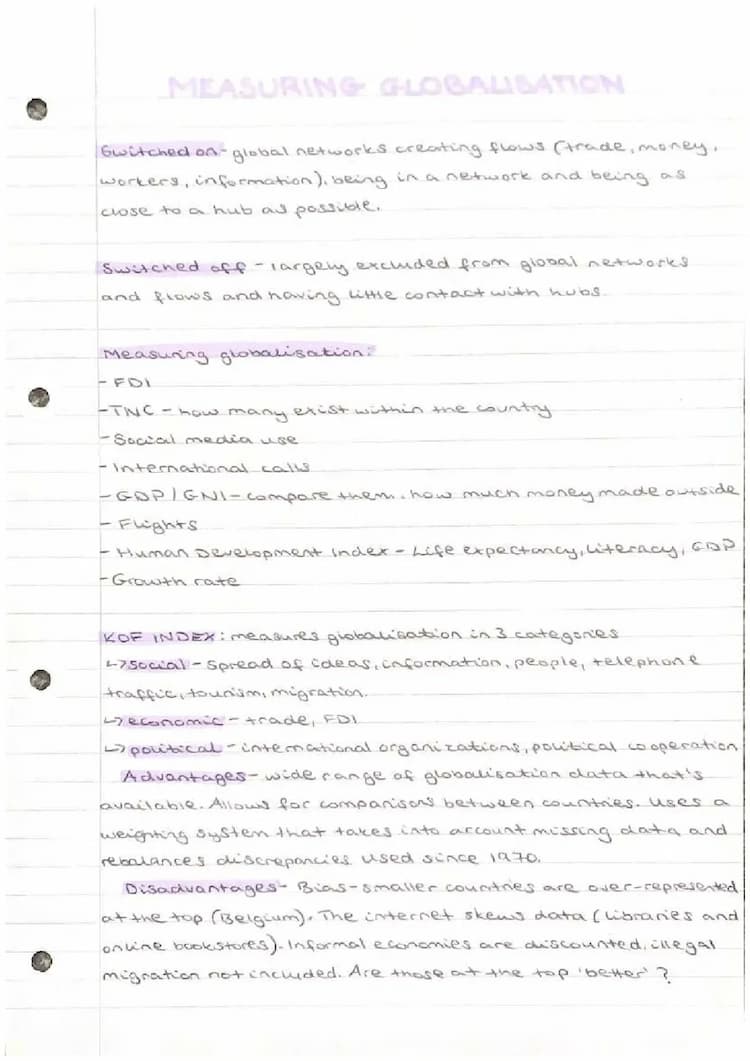 MEASURING GLOBALISATION
Switched on - global networks creating flows (trade, money,
workers, information), being in a network and being as
close to a hub as possible.
Switched off - largely excluded from global networks
and flows and having little contact with hubs.
Measuring globalisation:
- FDI
- TNC - how many exist within the country
- Social media use
- International calls
- GDP/GNI - compare them, how much money made outside
- Flights
- Human Development Index - Life expectancy, literacy, GDP
- Growth rate
KOF INDEX: measures globalisation in 3 categories
↳ social - spread of ideas, information, people, telephone
traffic, tourism, migration.
↳ economic - trade, FDI
↳ political - international organizations, political cooperation
Advantages - wide range of globalisation data that's
available. Allows for comparisons between countries. Uses a
weighting system that takes into account missing data and
rebalances discrepancies used since 1970.
Disadvantages - Bias - smaller countries are over-represented
at the top (Belgium). The internet skews data (libraries and
online bookstores). Informal economies are discounted, illegal
migration not included. Are those at the top 'better'?